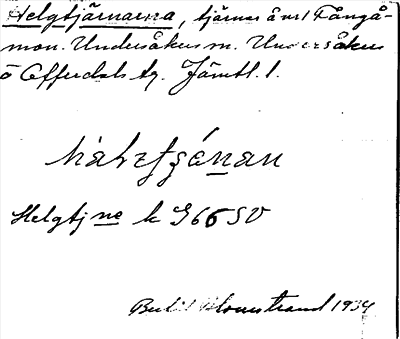 Helgtjärnarna, tjärnar å vel Tångå-
mon. Undersåkers sn. Undersåkers
o Offerdals tg. Jämtl. l.
hàlztʃę́nan
Helgtj ne k G66SV
Bertil Blomstrand 1934